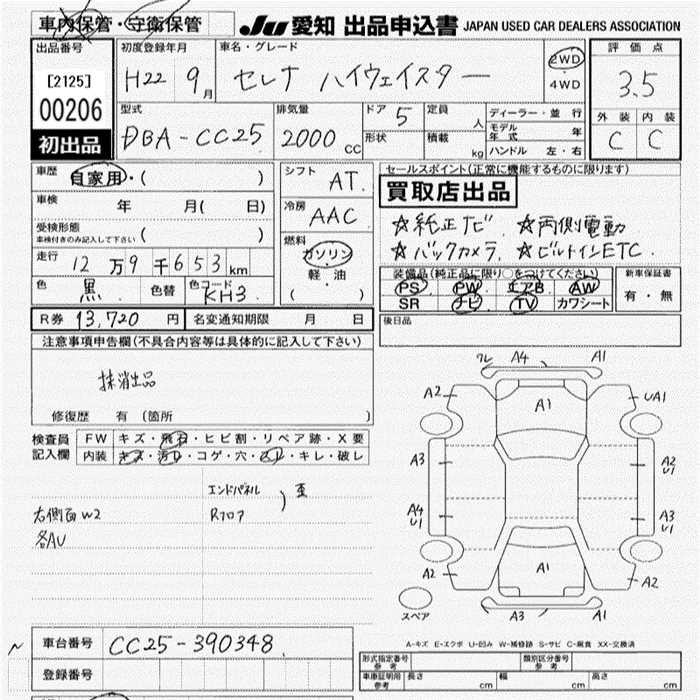 車内保管・守衛保管
JU 愛知 出品申込書 JAPAN USED CAR DEALERS ASSOCIATION
出品番号
[2125]
00206
初出品
初度登録年月
H22 9月
車名・グレード
セレナ ハイウェイスター
2WD
・
4WD
評価点
3.5
外装 内装
C C
型式
DBA-CC25
排気量
2000 CC
ドア 5
形状
定員 人
積載 kg
ディーラー・並行
モデル年式 年
ハンドル 左・右
車歴
自家用・( )
車検
年 月( 日)
受検形態
車検付きのみ記入して下さい ( )
走行
12万9千653km
色
黒
色替
色コード
KH3
シフト
AT
冷房
AAC
燃料
ガソリン
軽・油
( )
セールスポイント(正常に機能するものに限ります)
買取店出品
☆純正ナビ ☆両側電動
☆バックカメラ ☆ビルトインETC
装備品(純正品に限り○をつけてください)
PS PW エアB AW
SR ナビ TV カワシート
新車保証書
有・無
R券 13,720円 名変通知期限 月 日
後日品
注意事項申告欄(不具合内容等は具体的に記入して下さい)
抹消出品
修復歴 有 (箇所 )
検査員
記入欄
FW キズ・飛石・ヒビ割・リペア跡・X要
内装 キズ・汚レ・コゲ・穴・スレ・キレ・破レ
エンドパネル
Rフロア
)歪
右側面W2
各AU
ワレ A4 A1
A2 A1 UA1
A3 A2 U1
A4 U1 A3 U1
A2 A1 A2
スペア A3 A1
A-キズ E-エクボ U-凹み W-補修跡 S-サビ C-腐食 XX-交換済
車台番号 CC25-390348
登録番号
形式指定番号 参考
類別区分番号 参考
車庫証明用 参考 長さ cm 幅 cm 高さ cm